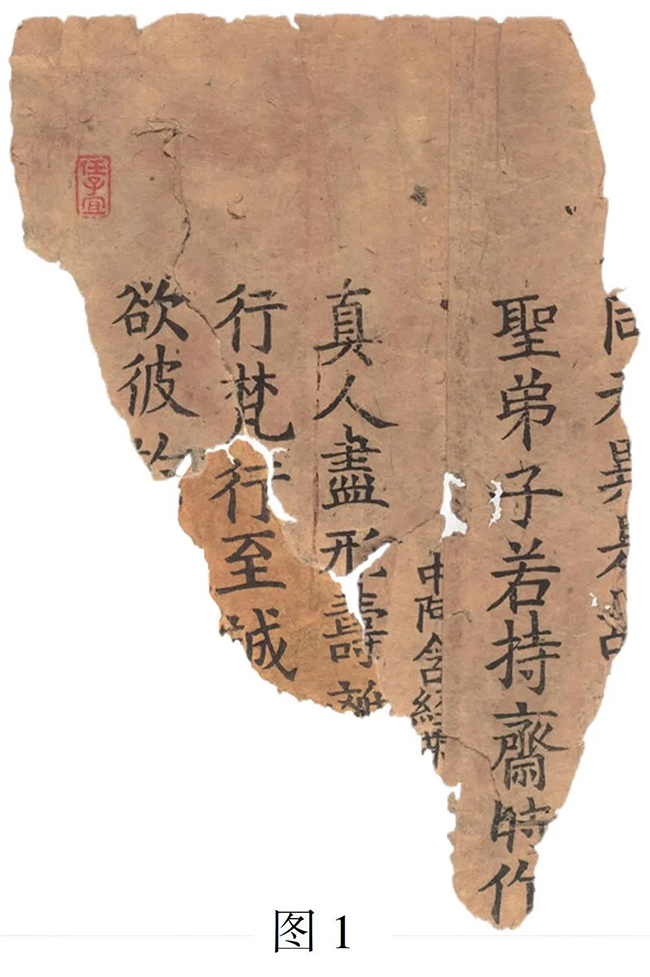 同无異是
聖弟子若持齋時作
中阿含經第
真人盡形壽離
行梵行至誠
欲彼
任子宜
图 1